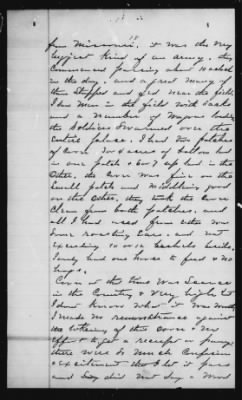 18
from Missouri, it was the very
biggest kind of an army. They
commenced passing about 10 oclock
in the day, and a great many of
them stopped and fed near the field.
I saw men in the field with sacks
and a number of wagons loading
the soldiers swarmed over the
entire place. I had two patches
of corn
in one patch & 6 or 7 in the
other, the corn was fine on the
small patch and middling good
on the other, they took the corn
clean from both patches, and
all I had used from either was
some roasting ears, and not
exceeding 10 or 12 bushels besides.
I only had one horse to feed & no
hogs.
Corn at the time was scarce
in the country & very high, but
I dont know what it was worth
I made no remonstrance against
the taking of the corn & no
effort to get a receipt or pay
there was so much confusion
& excitement that I let it pass
and did not say a word